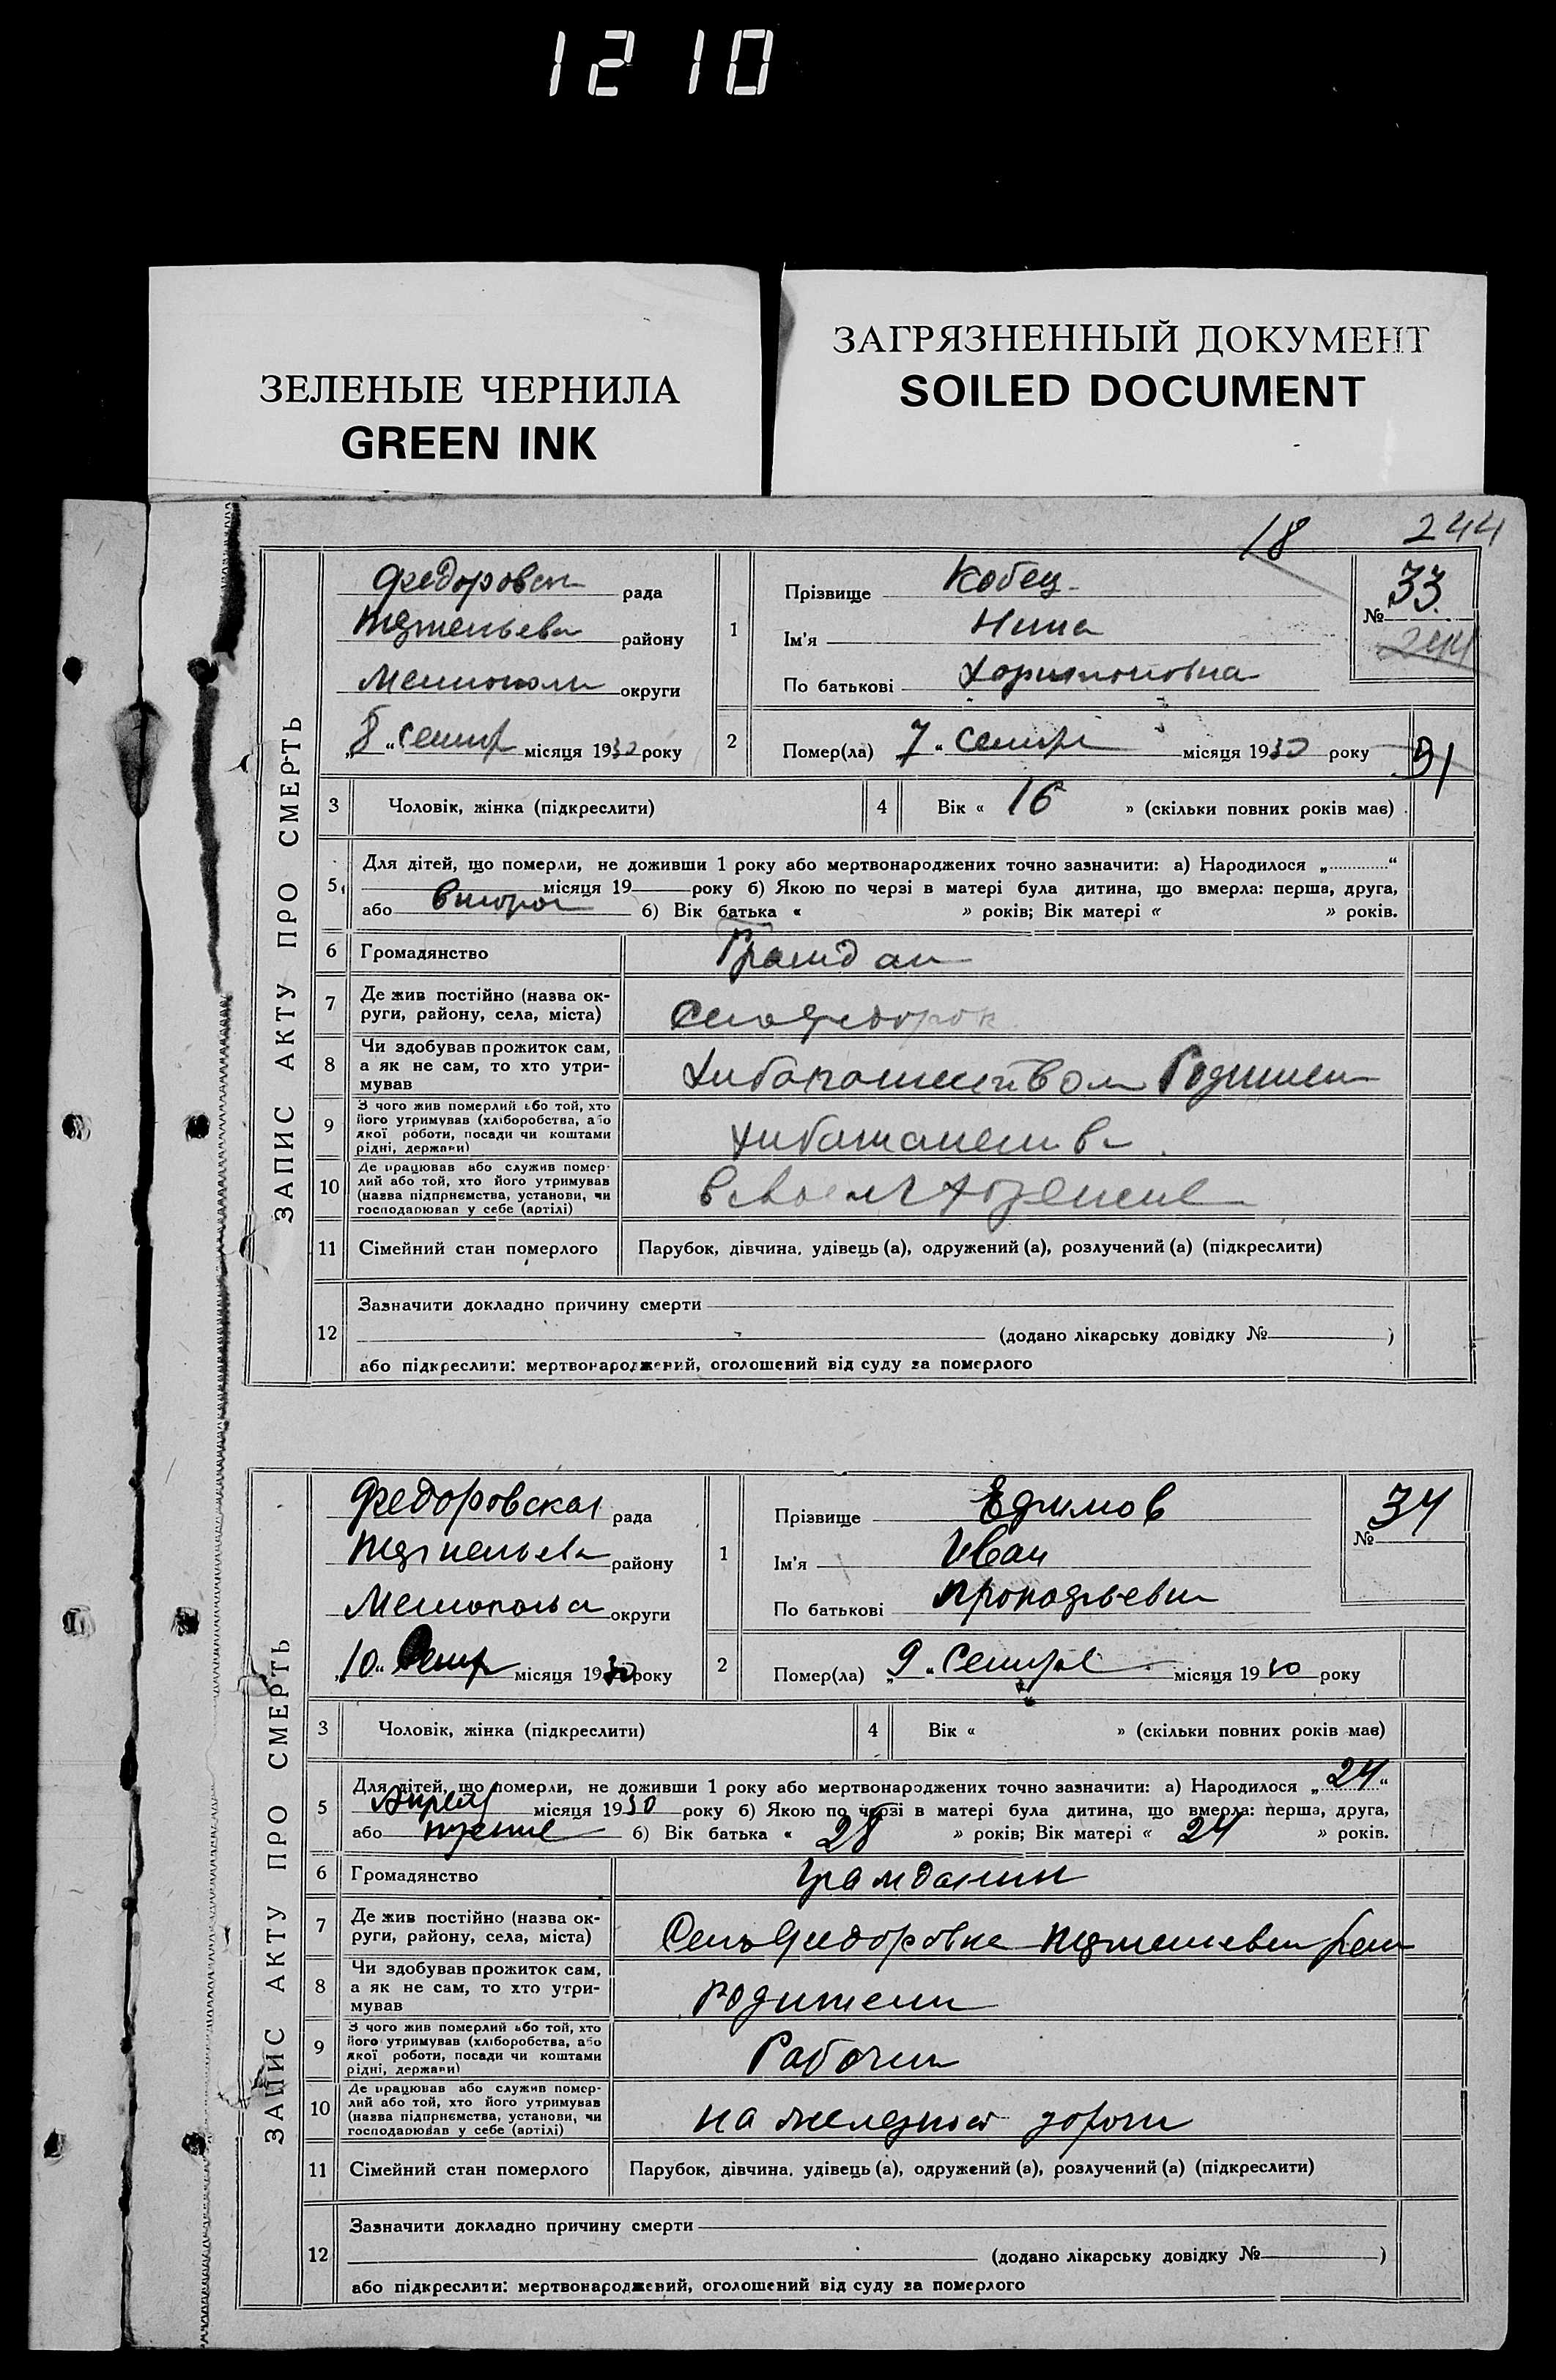 1210
ЗЕЛЕНЫЕ ЧЕРНИЛА
GREEN INK
ЗАГРЯЗНЕННЫЙ ДОКУМЕНТ
SOILED DOCUMENT
18 244
ЗАПИС АКТУ ПРО СМЕРТЬ
рада
району
округи
„8“ сентр місяця 1930 року
1
Прізвище Кобец
Ім'я Нина
По батькові Харитоновна
№ 33
244
2 Помер(ла) „7“ місяця 1930 року
31
3 Чоловік, жінка (підкреслити)
4 Вік « 16 » (скільки повних років має)
5 Для дітей, що померли, не доживши 1 року або мертвонароджених точно зазначити: а) Народилося „ “
місяця 19 року б) Якою по черзі в матері була дитина, що вмерла: перша, друга,
або б) Вік батька « » років; Вік матері « » років.
6 Громадянство Граждан
7 Де жив постійно (назва ок-
руги, району, села, міста)
8 Чи здобував прожиток сам,
а як не сам, то хто утри-
мував
9 З чого жив померлий або той, хто
його утримував (хліборобства, або
якої роботи, посади чи коштами
рідні, держави)
10 Де працював або служив помер-
лий або той, хто його утримував
(назва підприємства, установи, чи
господарював у себе (артілі)
11 Сімейний стан померлого Парубок, дівчина, удівець (а), одружений (а), розлучений (а) (підкреслити)
12 Зазначити докладно причину смерти
(додано лікарську довідку № )
або підкреслити: мертвонароджений, оголошений від суду за померлого
ЗАПИС АКТУ ПРО СМЕРТЬ
Федоровская рада
району
округи
„10“ Сентр місяця 1930 року
1
Прізвище Ефимов
Ім'я Иван
По батькові
№ 34
2 Помер(ла) „9“ місяця 1930 року
3 Чоловік, жінка (підкреслити)
4 Вік « » (скільки повних років має)
5 Для дітей, що померли, не доживши 1 року або мертвонароджених точно зазначити: а) Народилося „24“
місяця 1930 року б) Якою по черзі в матері була дитина, що вмерла: перша, друга,
або б) Вік батька « 28 » років; Вік матері « 24 » років.
6 Громадянство Гражданин
7 Де жив постійно (назва ок-
руги, району, села, міста) Село Федоровка
8 Чи здобував прожиток сам,
а як не сам, то хто утри-
мував Родители
9 З чого жив померлий або той, хто
його утримував (хліборобства, або
якої роботи, посади чи коштами
рідні, держави) Рабочий
10 Де працював або служив помер-
лий або той, хто його утримував
(назва підприємства, установи, чи
господарював у себе (артілі) на железной дороги
11 Сімейний стан померлого Парубок, дівчина, удівець (а), одружений (а), розлучений (а) (підкреслити)
12 Зазначити докладно причину смерти
(додано лікарську довідку № )
або підкреслити: мертвонароджений, оголошений від суду за померлого